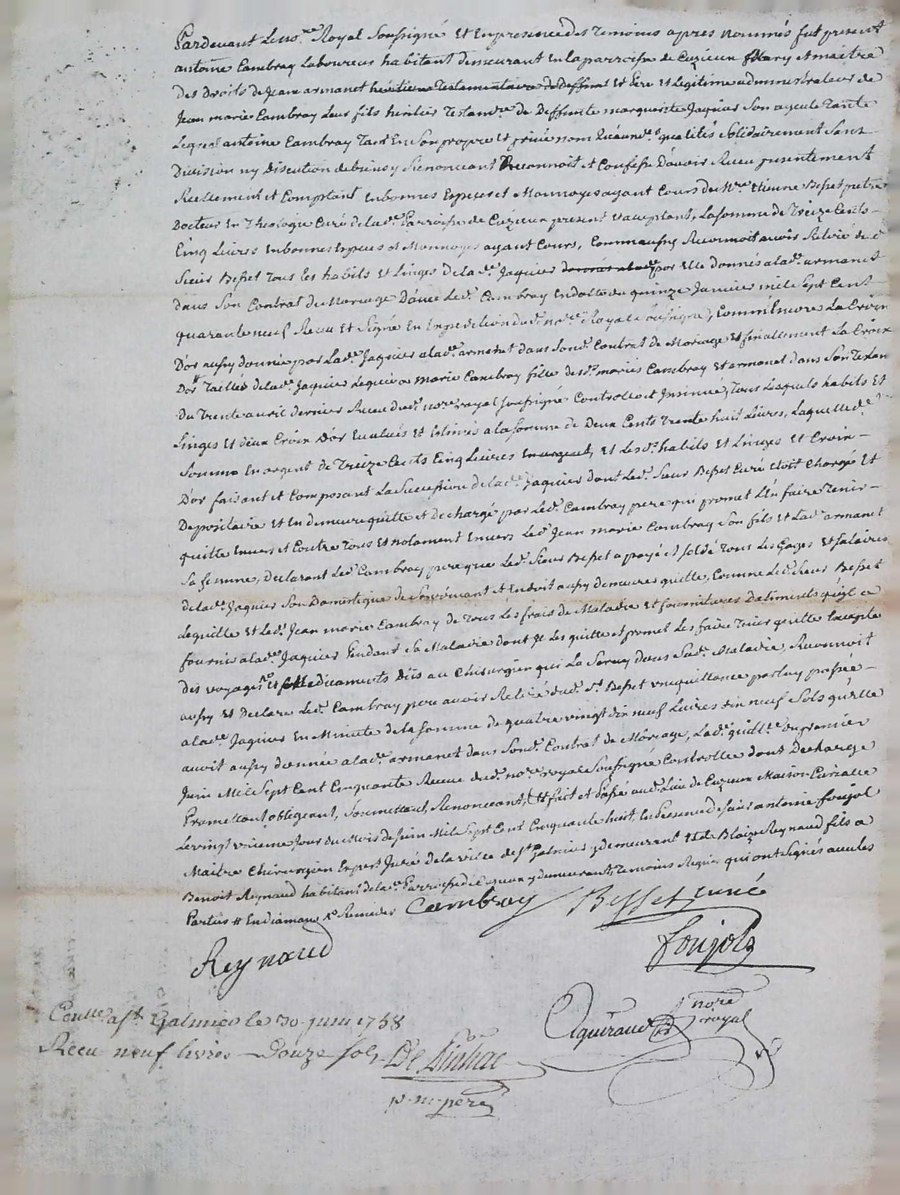 Pardevant Le no.re Royal Soussigné Et En presence des temoins apres nommés fut present
antoine Cambray Laboureur habitant demeurant en la parroisse de Cuzieu Mary et maitre
des Droits de Jean armanet heritiere Testamentaire de deffunt Et Pere et Legitime administrateur de
Jean marie Cambray Leur fils heritier Testam.re de Deffunte marguerite Jaquier Son ayeule tante
Lequel antoine Cambray Tant En Son propre et privé nom Qu'aud. qualités Solidairement Sans
Division ny Discution de biens y Renonceant Reconnoit et Confesse D'avoir Receu presentement
Reellement et Comptant En bonnes Especes et Monnoyes ayant Cours de M.re Etienne Besset pretre
Docteur En Theologie Curé de lad.e Parroisse de Cuzieu present et acceptant, La somme de Treize Cents
Cinq Livres En bonnes Especes et Monnoyes ayant Cours, Comme aussy Reconnoit avoir Retiré dud.
Sieur Besset Tous les habits et Linges de la d.e Jaquier par Elle donnés a lad.e armanet
dans Son Contrat de Mariage D'avec Led.t Cambray En datte du quinze Janvier mil Sept Cent
quarante neuf Receu et Signé En Expedition du d.t no.re Royal Soussigné, Comm'Encore La Croix
D'or aussy donnée par Lad.e Jaquier a lad.e armanet dans Sond.t Contrat de Mariage Et finallement La Croix
D'or Taillée de la d.e Jaquier Leguée a marie Cambray fille des d.s mariés Cambray et armanet dans Son Testam
Du Trente avril dernier Receu dud.t no.re royal Soussigné Controllé et Insinué, Tous Lesquels habits Et
Linges Et deux Croix D'or Evalués et Estimés a la somme de Deux Cents Trente huit Livres, Laquelle d.e
Somme En argent de Treize Cents Cinq Livres et Les d.s habits et Linges Et Croix
D'or faisant et Composant La Succession de la d.e Jaquier dont Led.t Sieur Besset Curé Etoit Chargé Et
Depositaire et En demeure quitte et decharge par Led.t Cambray pere qui promet L'En faire Tenir
quitte Envers et Contre Tous Et notament Envers Led.t Jean marie Cambray Son fils et Lad.e armanet
Sa femme, declarant Led.t Cambray pere que Led.t Sieur Besset a payé et Soldé Tous Les Gages Et Salaires
de la d.e Jaquier Son Domestique de Son vivant et En doit aussy demeurer quitte, Comme Led.t Sieur Besset
Le quitte et Led.t Jean marie Cambray de Tous Les frais de Maladie et fournitures D'aliments qu'il a
fournis a la d.e Jaquier Pendant Sa Maladie dont Il Les quitte et promet Les faire Tenir quitte Excepté
des voyages et Medicaments Dus au Chirurgien qui La Servy dans Sad.e Maladie, Reconnoit
aussy Et Declare Led.t Cambray pere avoir Retiré dud.t S.r Besset une quittance par luy passée
a la d.e Jaquier En Minutte de la Somme de quatre vingt dix neuf Livres dix neuf Sols qu'elle
avoit aussy donnée a lad.e armanet dans Sond.t Contrat de Mariage, Lad.e quitt.ce du premier
Juin Mil Sept Cent Cinquante Receue dud.t no.re royal Soussigné Controllé dont Decharge
Promettant, obligeant, Soumettant, Renonceant, Et fait et Passé aud.t Lieu de Cuzieu Maison Curialle
Le vingt unieme Jour du Mois de Juin Mil Sept Cent Cinquante huit, En presence de Sieur antoine foujols
Maitre Chirurgien Expert Juré de la ville de S.t Galmier y demeurant et de Blaize Reynaud fils a
Benoit Reynaud habitant de la d.e Parroisse de y demeurant, Temoins Requis qui ont Signés avec les
Parties
Cambray Besset curé
Reynaud foujols
Con.lle a S.t Galmier le 30 juin 1758
Recu neuf livres Douze sols
no.re royal
p. m. pere